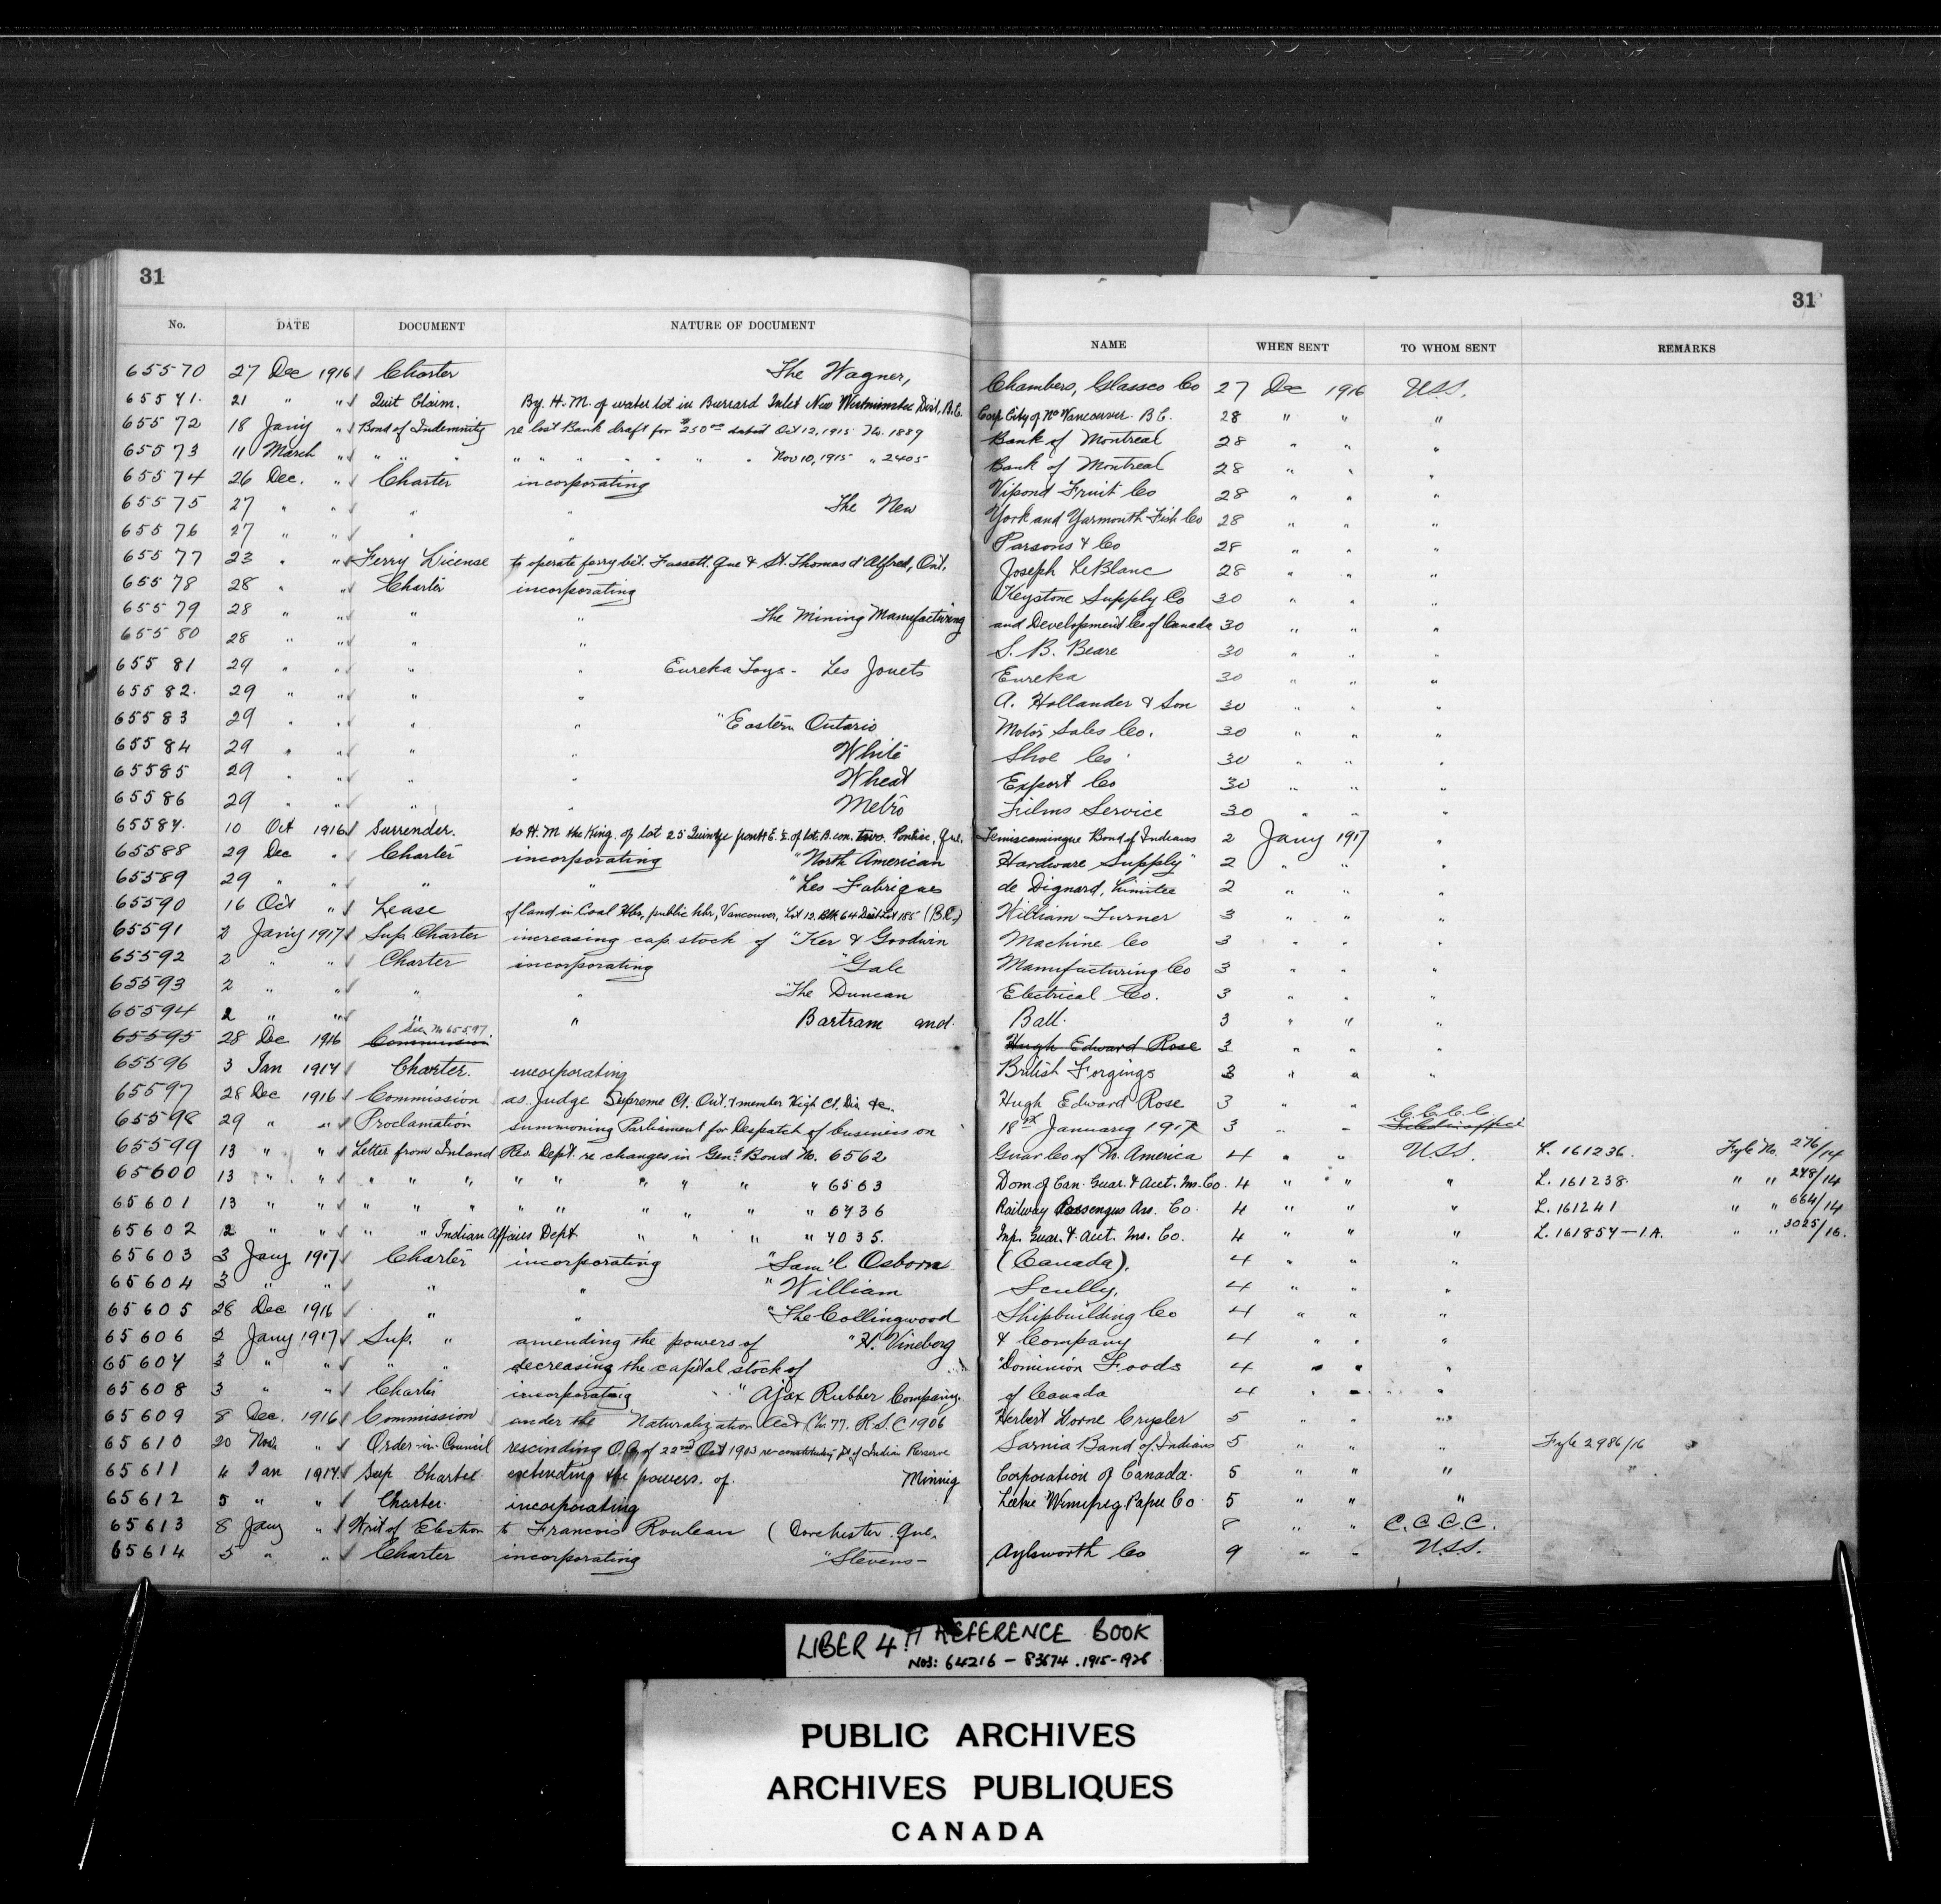 31
31
No. DATE DOCUMENT NATURE OF DOCUMENT NAME WHEN SENT TO WHOM SENT REMARKS
65570 27 Dec 1916 Charter The Wagner, Chambers, Glassco Co 27 Dec 1916 U.S.S.
65571. 21 " " Quit Claim. By H.M. of water lot in Burrard Inlet New Westminster Dist, B.C. Corp City of No Vancouver. B.C. 28 " " "
65572 18 Jany " Bond of Indemnity re lost Bank draft for $250 00 dated Oct 12, 1915 No. 1889 Bank of Montreal 28 " " "
65573 11 March " " " " " " " " " " " Nov 10, 1915 " 2405 Bank of Montreal 28 " " "
65574 26 Dec. " Charter incorporating Vipond Fruit Co 28 " " "
65575 27 " " " " The New York and Yarmouth Fish Co 28 " " "
65576 27 " " " " Parsons & Co 28 " " "
65577 23 " " Ferry License to operate ferry bet. Fassett, Que & St. Thomas d'Alfred, Ont. Joseph LeBlanc 28 " " "
65578 28 " " Charter incorporating Keystone Supply Co 30 " " "
65579 28 " " " " The Mining Manufacturing and Development Co of Canada 30 " " "
65580 28 " " " " S. B. Beare 30 " " "
65581 29 " " " " Eureka Toys - Les Jouets Eureka 30 " " "
65582. 29 " " " " A. Hollander & Son 30 " " "
65583 29 " " " " "Eastern Ontario Motor Sales Co. 30 " " "
65584 29 " " " " White Shoe Co 30 " " "
65585 29 " " " " Wheat Export Co 30 " " "
65586 29 " " " " Metro Films Service 30 " " "
65587. 10 Oct 1916 Surrender. to H.M the King. of lot 25 Quinze front E. ½ of lot, B. con. two. Pontiac, Que. Temiscamingue Band of Indians 2 Jany 1917 "
65588 29 Dec " Charter incorporating "North American Hardware Supply" 2 " " "
65589 29 " " " " "Les Fabriques de Dignard, Limitee 2 " " "
65590 16 Oct " Lease of land in Coal Hbr, public hbr, Vancouver, Lot 13. Blk 64 Dist Lot 185 (B.C.) William Turner 3 " " "
65591 2 Jany 1917 Sup. Charter increasing cap. stock of "Ker & Goodwin Machine Co 3 " " "
65592 2 " " Charter incorporating "Gale Manufacturing Co 3 " " "
65593 2 " " " " "The Duncan Electrical Co. 3 " " "
65594 2 " " " " Bartram and Ball. 3 " " "
See No 65597
65595 28 Dec 1916 Commission Hugh Edward Rose 3 " " "
65596 3 Jan 1917 Charter. incorporating British Forgings 3 " " "
65597 28 Dec 1916 Commission as Judge Supreme Ct. Ont. & member High Ct. Div. &c. Hugh Edward Rose 3 " "
65598 29 " " Proclamation summoning Parliament for Despatch of business on 18th January 1917 3 " " C.C.C.C.
65599 13 " " Letter from Inland Rev. Dept. re changes in Genl Bond No. 6562 Guar Co of N. America 4 " " U.S.S. L. 161236. Fyle No. 276/14
65600 13 " " " " " " " " " " " 6563 Dom. of Can. Guar. & Acct. Ins. Co. 4 " " " L. 161238 " " 248/14
65601 13 " " " " " " " " " " " 6736 Railway Passengers Ass. Co. 4 " " " L. 161241 " " 664/14
65602 2 " " " " Indian Affairs Dept " " " " 7035. Imp. Guar. & Acct. Ins. Co. 4 " " " L. 161857-I.A. " " 3025/16.
65603 3 Jany 1917 Charter incorporating "Sam'l Osborn (Canada). 4 " " "
65604 3 " " " " "William Scully, 4 " " "
65605 28 Dec 1916 " " "The Collingwood Shipbuilding Co 4 " " "
65606 2 Jany 1917 Sup. " amending the powers of "H. Vineberg & Company 4 " " "
65607 3 " " " " decreasing the capital stock of "Dominion Foods 4 " " "
65608 3 " " Charter incorporating "Ajax Rubber Company of Canada 4 " " "
65609 8 Dec. 1916 Commission under the Naturalization Act Ch. 77. R.S.C 1906 Herbert Lorne Crysler 5 " " "
65610 20 Nov. " Order-in-Council rescinding O.C. of 22nd Oct 1903 re constituting pt. of Indian Reserve Sarnia Band of Indians 5 " " " Fyle 2986/16
65611 4 Jan 1917 Sup Charter extending the powers. of Mining Corporation of Canada. 5 " " "
65612 5 " " Charter incorporating Winnipeg Paper Co. 5 " " "
65613 8 Jany " Writ of Election to Francois Rouleau (Dorchester. Que. 8 " " C.C.C.C.
65614 5 " " Charter incorporating "Stevens- Aylsworth Co 9 " " U.S.S.
LIBER 4 H REFERENCE BOOK
NOS: 64216 - 83674. 1915-1926
PUBLIC ARCHIVES
ARCHIVES PUBLIQUES
CANADA